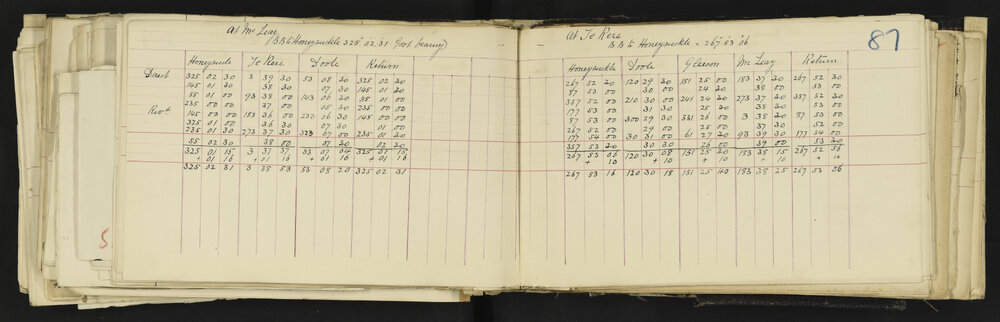 At McLeay
(BB to Honeysuckle 325° 02' 31 Govt bearing)
Honeysuckle Te Rere Doole Return
Direct 325 02 30 3 39 30 53 08 30 325 02 30
145 01 30 38 30 07 30 145 01 30
55 01 00 93 38 00 143 06 30 55 01 00
235 00 00 37 00 05 30 235 00 00
Rev. 145 00 00 183 36 00 233 06 30 145 00 00
325 01 00 36 30 07 30 01 00
235 01 30 273 37 30 323 07 00 235 01 30
55 02 30 38 00 07 30 02 30
325 01 15 3 37 37 53 07 04 325 01 15
+ 01 16 + 01 16 + 01 16 + 01 16
325 02 31 3 38 53 53 08 20 325 02 31
5
At Te Rere
BB to Honeysuckle - 267° 53' 06
87
Honeysuckle Doole Gleeson McLeay Return
267 52 30 120 29 30 151 25 00 183 37 30 267 52 30
87 53 00 30 00 24 30 38 00 53 00
357 52 00 210 30 00 241 24 30 273 37 30 357 52 30
177 53 00 31 30 25 30 38 30 53 00
87 53 00 300 29 30 331 26 00 3 38 30 87 53 00
267 52 00 29 00 25 00 37 30 52 00
177 54 00 30 31 00 61 27 30 93 39 30 177 54 00
357 53 30 30 30 26 00 39 00 53 30
267 53 06 120 30 08 151 25 30 183 38 15 267 52 56
+ 10 + 10 + 10 + 10 + 10
267 53 16 120 30 18 151 25 40 183 38 25 267 53 06